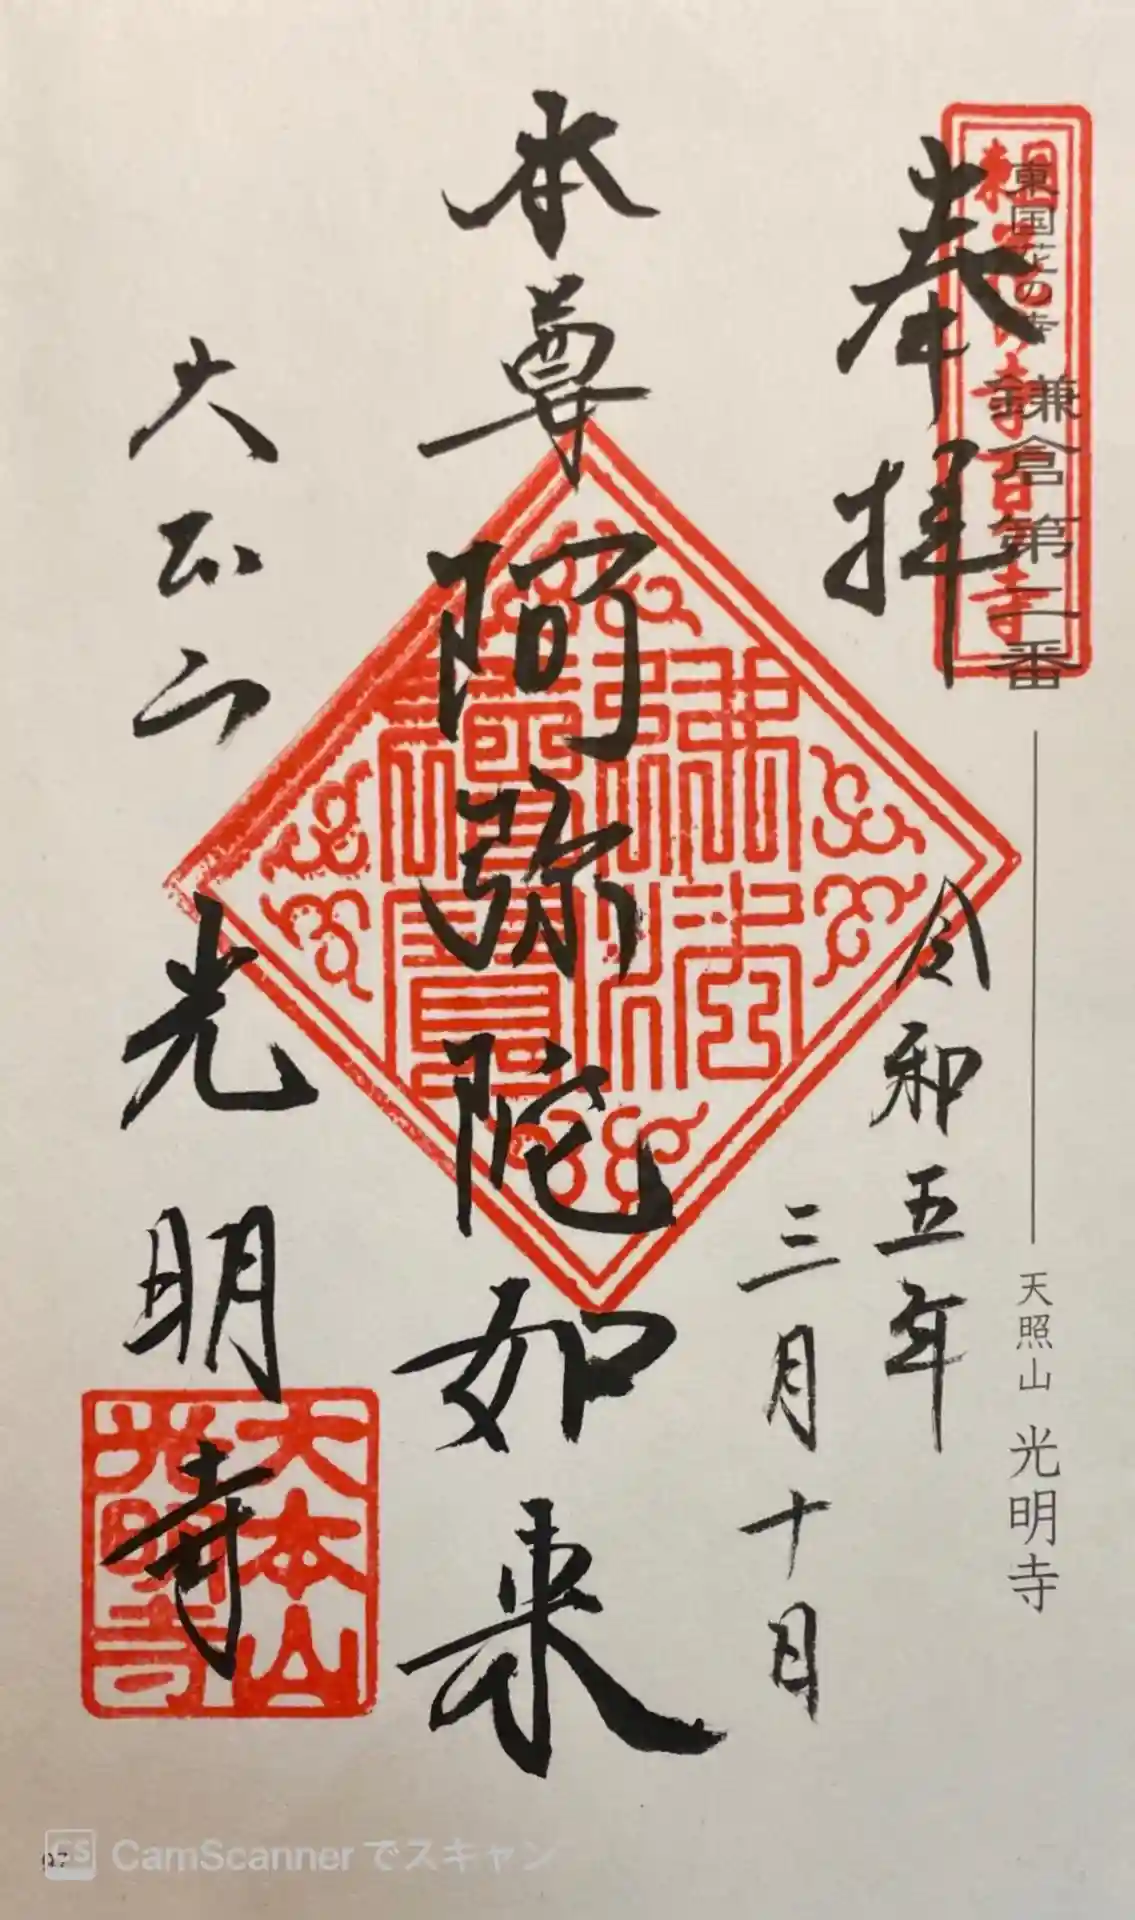 東国花の寺 鎌倉第二番
天照山 光明寺
奉拝
令和五年
三月十日
本尊 阿弥陀如来
大本山
光明寺
大本山
光明寺
CS CamScanner でスキャン